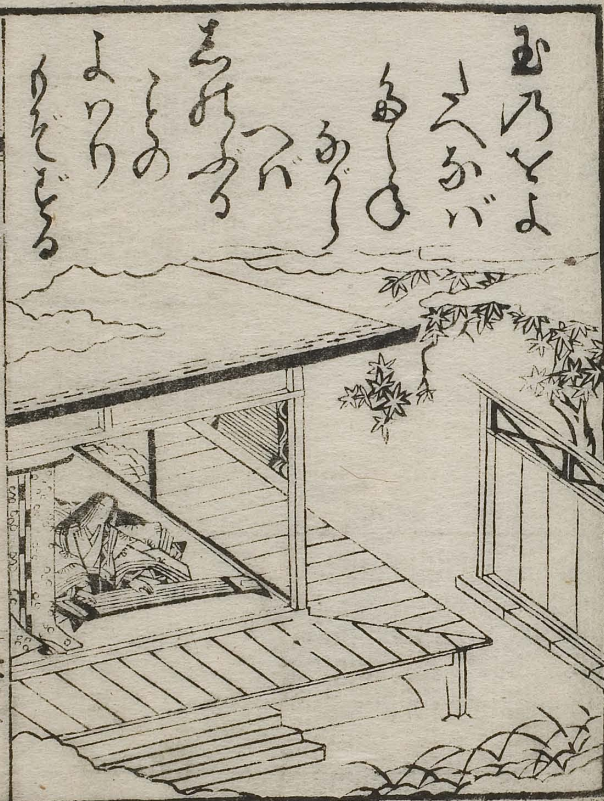 玉のをよ
たへなば
たへね
ながら
へば
しのぶる
ことの
よハり
もぞする